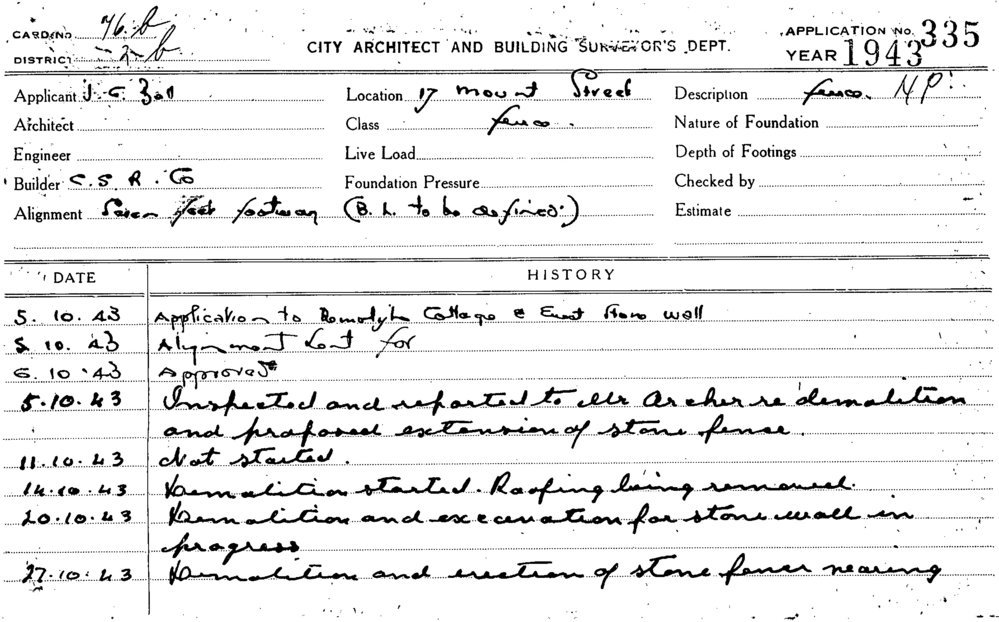 CARD No 76.b
DISTRICT 2.b
CITY ARCHITECT AND BUILDING SURVEYOR'S DEPT.
APPLICATION No. 335
YEAR 1943
Applicant J. C.
Location 17 Mount Street
Description fence. NP.
Architect
Class fence.
Nature of Foundation
Engineer
Live Load
Depth of Footings
Builder C. S. R. Co
Foundation Pressure
Checked by
Alignment Seven feet footway (B. L. to be defined.)
Estimate
DATE HISTORY
5. 10. 43 Application to Demolish Cottage & Erect Stone wall
5 10. 43 Alignment sent for
6. 10. 43 Approved
5.10.43 Inspected and reported to Mr Archer re demolition
and proposed extension of stone fence.
11.10.43 Not started.
14.10.43 Demolition started. Roofing being removed.
20.10.43 Demolition and excavation for stone wall in
progress
27.10.43 Demolition and erection of stone fence nearing